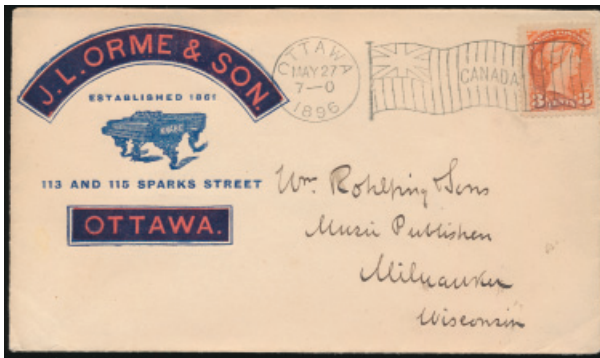 J. L. ORME & SON.
ESTABLISHED 1861
113 AND 115 SPARKS STREET
OTTAWA.
OTTAWA
MAY 27
7-0
1896
CANADA
3 CENTS 3
Wm. Rohlfing Sons
Music Publishers
Milwaukee
Wisconsin